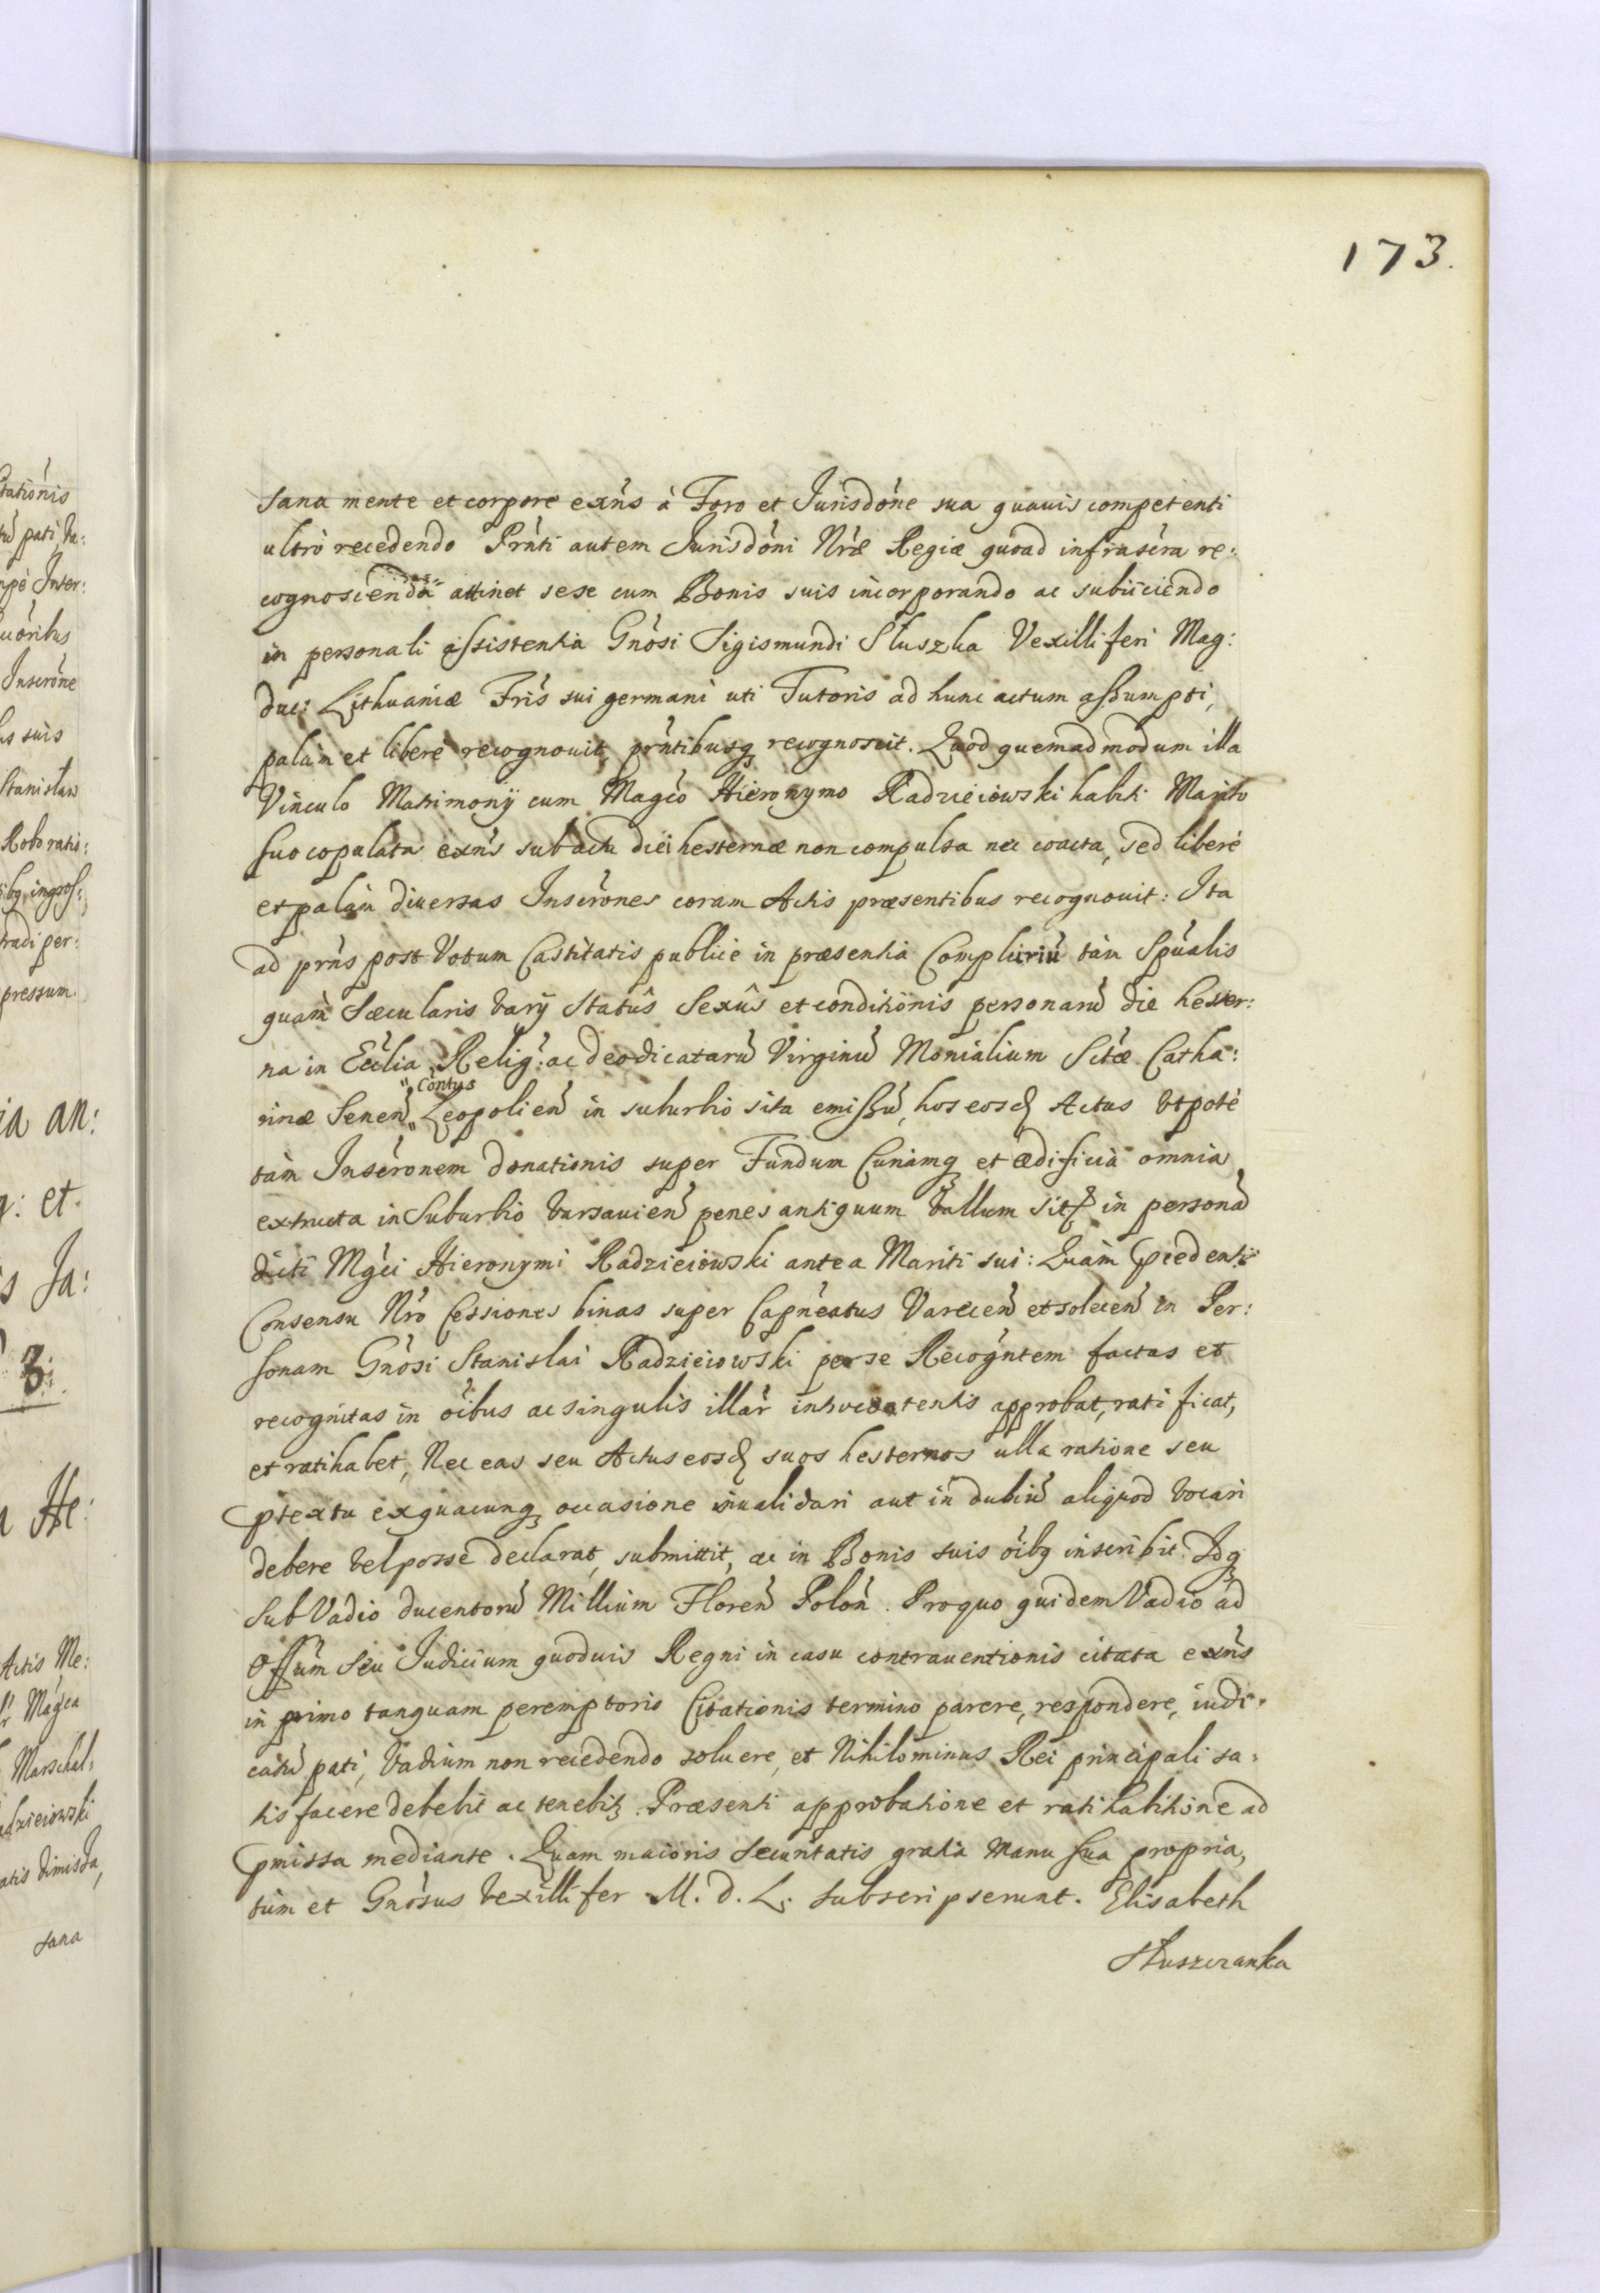 173.
sana mente et corpore exñs à Foro et Jurisdõne sua quauis competenti
ultrò recedendo Prñti autem Jurisdõni Nræ Regiæ quoad infrascra re:
cognoscenda attinet sese cum Bonis suis incorporando ac subijciendo
in personali assistentia Gnosi Sigismundi Słuszka Vexilliferi Mag:
duc: Lithuaniæ Fris sui germani uti Tutoris ad hunc actum assumpti,
palàm et liberè recognouit, prñtibusq recognoscit. Quod quemadmodum illa
Vinculo Matrimonÿ cum Magco Hieronymo Radzieiowski habiti Marito
suo copulata exñs sub actu diei hesternæ non compulsa nec coacta, sed liberè
et palàm diuersas Inscrones coram Actis præsentibus recognouit: Ita
ad prñs post Votum Castitatis publicè in præsentia Compluriũ tàm Spualis
quàm Sæcularis varÿ Statûs Sexûs et conditionis personarũ die hester:
na in Ecclia Relig: ac deodicatarũ Virginũ Monialium Sctæ Catha:
Contus
rinæ Senen Leopolien in suburbio sita emissũ, hos eosd Actus utpotè
tàm Inscronem donationis super Fundum Curiamq et ædificia omnia
extructa in Suburbio Varsauien penes antiquum Vallum sit in personã
dicti Mgci Hieronymi Radzieiowski antea Mariti sui: Quàm pcedenti
Consensu Nro Cessiones binas super Capneatus Varecen et solecen in Per:
sonam Gnosi Stanislai Radzieiowski per se Recogntem factas et
recognitas in oibus ac singulis illar approbat, ratificat,
et ratihabet, Nec eas seu Actus eosd suos hesternos ulla ratione seu
ptextu exquacunq occasione inualidari aut in dubiũ aliquod vocari
debere vel posse declarat, submittit, ac in Bonis suis oibq inscribit. Idq
sub Vadio ducentorũ Millium Floren Polon. Pro quo quidem Vadio ad
Offum Seu Judicium quoduis Regni in casu contrauentionis citata exñs
in primo tanquam peremptorio Citationis termino parere, respondere, iudi:
catũ pati, Vadium non recedendo soluere, et Nihilominus Rei principali sa:
tisfacere debebit ac tenebit. Præsenti approbatione et ratihabitione ad
pmissa mediante. Quam maioris Securitatis gratia manu sua propria,
tùm et Gnosus Vexillifer M. D. L. subscripserunt. Elisabeth
Słuszczanka
tationis
pati, Va:
Inser:
uoribus
Inscrone
suis
Stanisław
Roboratio:
tradi per:
pressum.
ia an:
: et
Ja:
3.
He:
Actis Me:
Magca
Marschal:
dzieiowski
atis dimissa,
sana